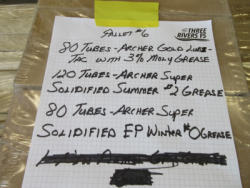 PALLET #6
THE
THREE
RIVERS
80 TUBES-ARCHER GOLD LUBE-
TAC WITH 3% MOLY GREASE
120 TUBES-ARCHER SUPER
SOLIDIFIED SUMMER #2 GREASE
80 TUBES-ARCHER SUPER
SOLIDIFIED EP WINTER #0 GREASE